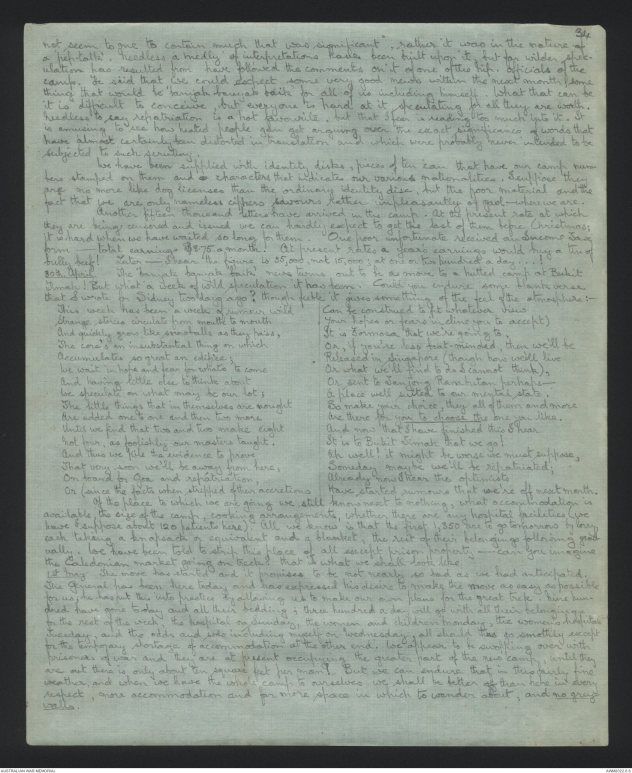 34
not seem to me to contain much that was significant, rather it was in the nature of
a pep-talk. Needless a medley of interpretations have been built upon it, but far wilder spec-
ulation has resulted from have followed the comments on it of one of the high officials of the
camp. He said that we could expect some very good news within the next month, some
thing that would be banyak banyak baik for all of us including himself. What that can be
it is difficult to conceive, but everyone is hard at it speculating for all they are worth.
Needless to say repatriation is a hot favourite, but that I fear is reading too much into it. It
is amusing to see how heated people can get arguing over the exact significance of words that
have almost certainly been distorted in translation and which were probably never intended to be
subjected to such scrutiny.
We have been supplied with identity disks, pieces of tin can that have our camp num-
bers stamped on them and characters that indicate our various nationalities. I suppose they
are no more like dog licenses than the ordinary identity disc, but the poor material and the
fact that we are only nameless ciphers savours rather unpleasantly of gaol - where we are.
Another fifteen thousand letters have arrived in the camp. At the present rate at which
they are being censored and issued we can hardly expect to get the last of them before Christmas;
it is hard when we have waited so long for them. One poor unfortunate received an Income Tax
form — total earnings $3.75 a month! At present rates a year's earnings would buy a tin of
bully beef! Later — I hear the figure is 35,000, not 15,000; at one or two hundred a day -- !!
30th April. The 'banyak banyak baik' news turns out to be a move to a hutted camp at Bukit
Timah! But what a week of wild speculation it has been. Could you endure some blank verse
that I wrote for Sidney two days ago? though feeble it gives something of the feel of the atmosphere:-
This week has been a week of rumour wild
Strange stories circulate from mouth to mouth
And quickly grow like snowballs as they pass,
The core's an insubstantial thing on which
Accumulates so great an edifice;
We wait in hope and fear for what's to come
And having little else to think about
We speculate on what may be our lot;
The little things that in themselves are nought
Are added one to one and then two more
Until we find that two and two make eight
Not four, as foolishly our masters taught.
And thus we the evidence to prove
That very soon we'll be away from here,
On board for Goa and repatriation,
Or (since the facts when stripped of their accretions
Can be construed to fit whatever view
Your hopes or fears incline you to accept)
It is Formosa that we're going to.
Or, if you're less -minded, then we'll be
Released in Singapore (though how we'd live
Or what we'll find to do I cannot think),
Or sent to Tanjong Rambutan perhaps—
A place well suited to our mental state.
So make your choice, they all of them and more
Are there for you to choose the one you like.
And now that I have finished this I hear
It is to Bukit Timah that we go!
Ah well! it might be worse we must suppose,
Someday maybe we'll be repatriated;
Already now I hear the optimists
Have started rumours that we're off next month.
Of the place to which we are going we still know next to nothing, what accommodation is
available, the size of the camp, cooking arrangements, whether there are any hospital facilities (we
have I suppose about 120 patients here). All we know is that the first 1,350 are to go tomorrow by lorry,
each taking a knapsack or equivalent and a blanket, the rest of their belongings following grad-
ually. We have been told to strip this place of all except prison property, — can you imagine
the Caledonian market going on trek? that is what we shall look like.
1st May. The move has started and it promises to be not nearly so bad as we had anticipated.
The General has been here today and has expressed his desire to make the move as easy as possible
for us; he has put this into practice by allowing us to make our own plans for the great trek. Nine hun-
dred have gone today and all their bedding; three hundred a day will go with all their belongings
for the rest of the week, the hospital on Sunday, the women and children Monday, the women's hospital
Tuesday, and the odds and sods including myself on Wednesday, all should thus go smoothly except
for the temporary shortage of accommodation at the other end. We appear to be swapping over with
prisoners of war and they are at present occupying the greater part of the new camp, until they
are out there is only about ten square feet per man! But we can endure that in this fine
weather, and when we have the whole camp to ourselves we shall be better off than here in every
respect, more accommodation and far more space in which to wander about, and no grey
walls.
AUSTRALIAN WAR MEMORIAL